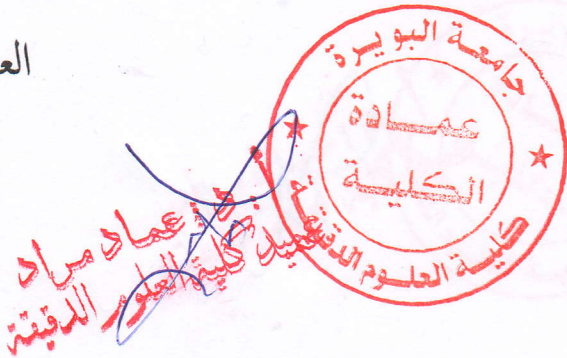 الع
جامعة البويرة
عمادة
الكلية
كلية العلوم الدقيقة
أ.د. عماد مراد
عميد كلية العلوم الدقيقة